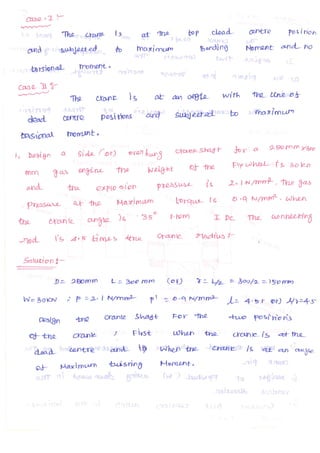 Case-I :-
The crank is at the top dead centre position
and subjected to maximum Bending Moment and no
torsional moment.
Case II :-
The crank is at an angle with the line of
dead centre positions and subjected to maximum
torsional moment.
1. Design a side (or) overhung crank shaft for a 250mm x 300
mm gas engine The weight of the Fly wheel is 30 kn
and the explosion pressure is 2.1 N/mm². The gas
pressure at the Maximum torque is 0.9 N/mm² when
the crank angle is 35° from I Dc. The connecting
rod is 4.5 times the crank radius :-
Solution :-
D= 250mm L = 300 mm (or) r = L/2 = 300/2 = 150mm
W= 30KN ; P = 2.1 N/mm² p' = 0.9 N/mm² l= 4.5r (or) l/r=4.5
Design the crank shaft For the two positions
of the crank ; First when the crank is at the
dead centre and when the crank is at an angle
of Maximum twisting Moment.